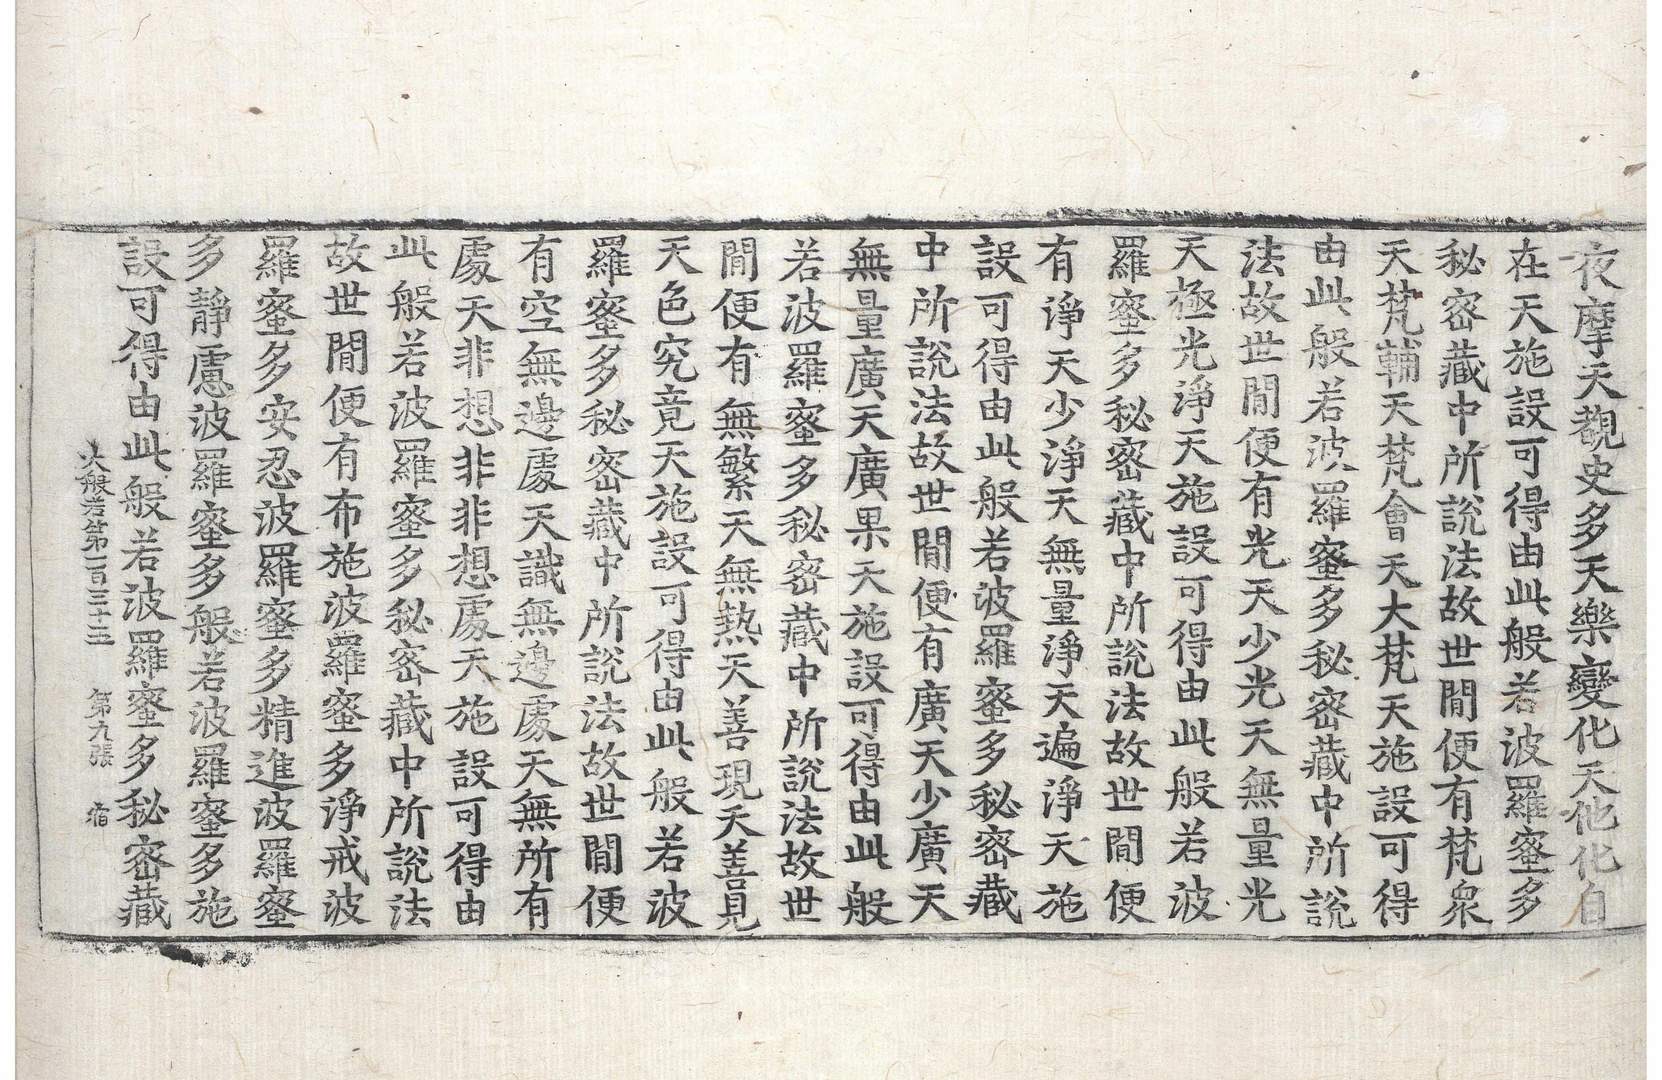 夜摩天覩史多天樂變化天他化自
在天施設可得由此般若波羅蜜多
秘密藏中所說法故世間便有梵衆
天梵輔天梵會天大梵天施設可得
由此般若波羅蜜多秘密藏中所說
法故世間便有光天少光天無量光
天極光淨天施設可得由此般若波
羅蜜多秘密藏中所說法故世間便
有淨天少淨天無量淨天遍淨天施
設可得由此般若波羅蜜多秘密藏
中所說法故世間便有廣天少廣天
無量廣天廣果天施設可得由此般
若波羅蜜多秘密藏中所說法故世
間便有無繁天無熱天善現天善見
天色究竟天施設可得由此般若波
羅蜜多秘密藏中所說法故世間便
有空無邊處天識無邊處天無所有
處天非想非非想處天施設可得由
此般若波羅蜜多秘密藏中所說法
故世間便有布施波羅蜜多淨戒波
羅蜜多安忍波羅蜜多精進波羅蜜
多靜慮波羅蜜多般若波羅蜜多施
設可得由此般若波羅蜜多秘密藏
大般若第一百三十三 第九張 宿